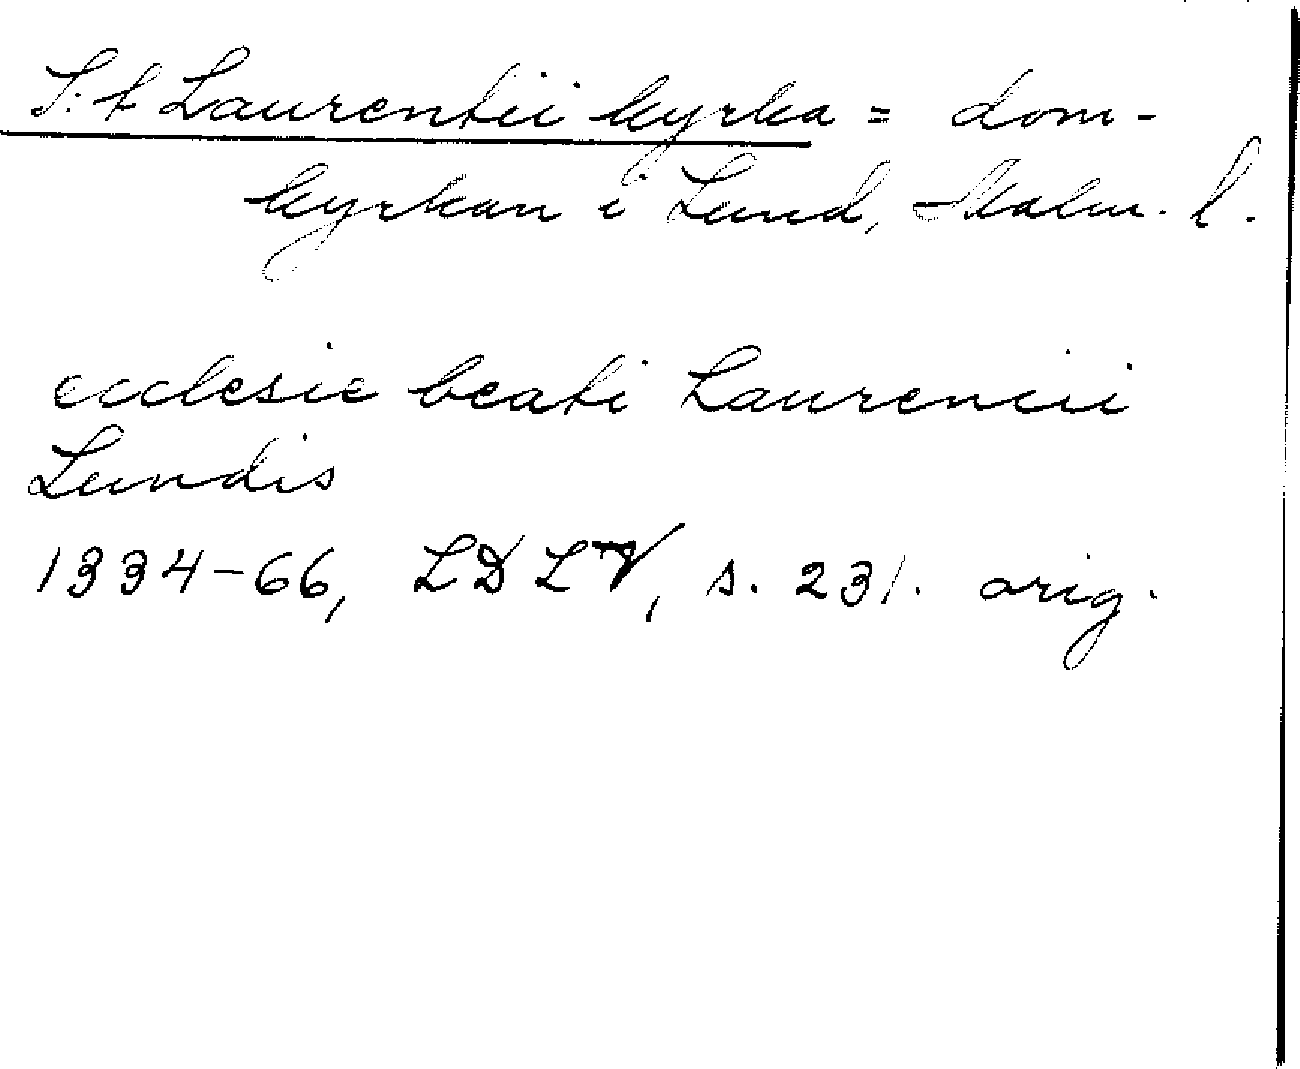 S:t Laurentii kyrka = dom-
kyrkan i Lund, Malm. l.
ecclesie beati Laurencii
Lundis
1334-66, LDLV, s. 231. orig.